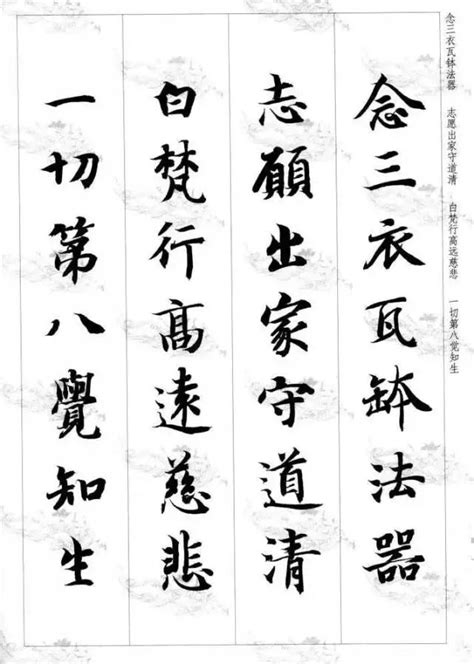 念三衣瓦钵法器 志愿出家守道清 白梵行高远慈悲 一切第八觉知生
念三衣瓦鉢法器
志願出家守道清
白梵行高遠慈悲
一切第八覺知生